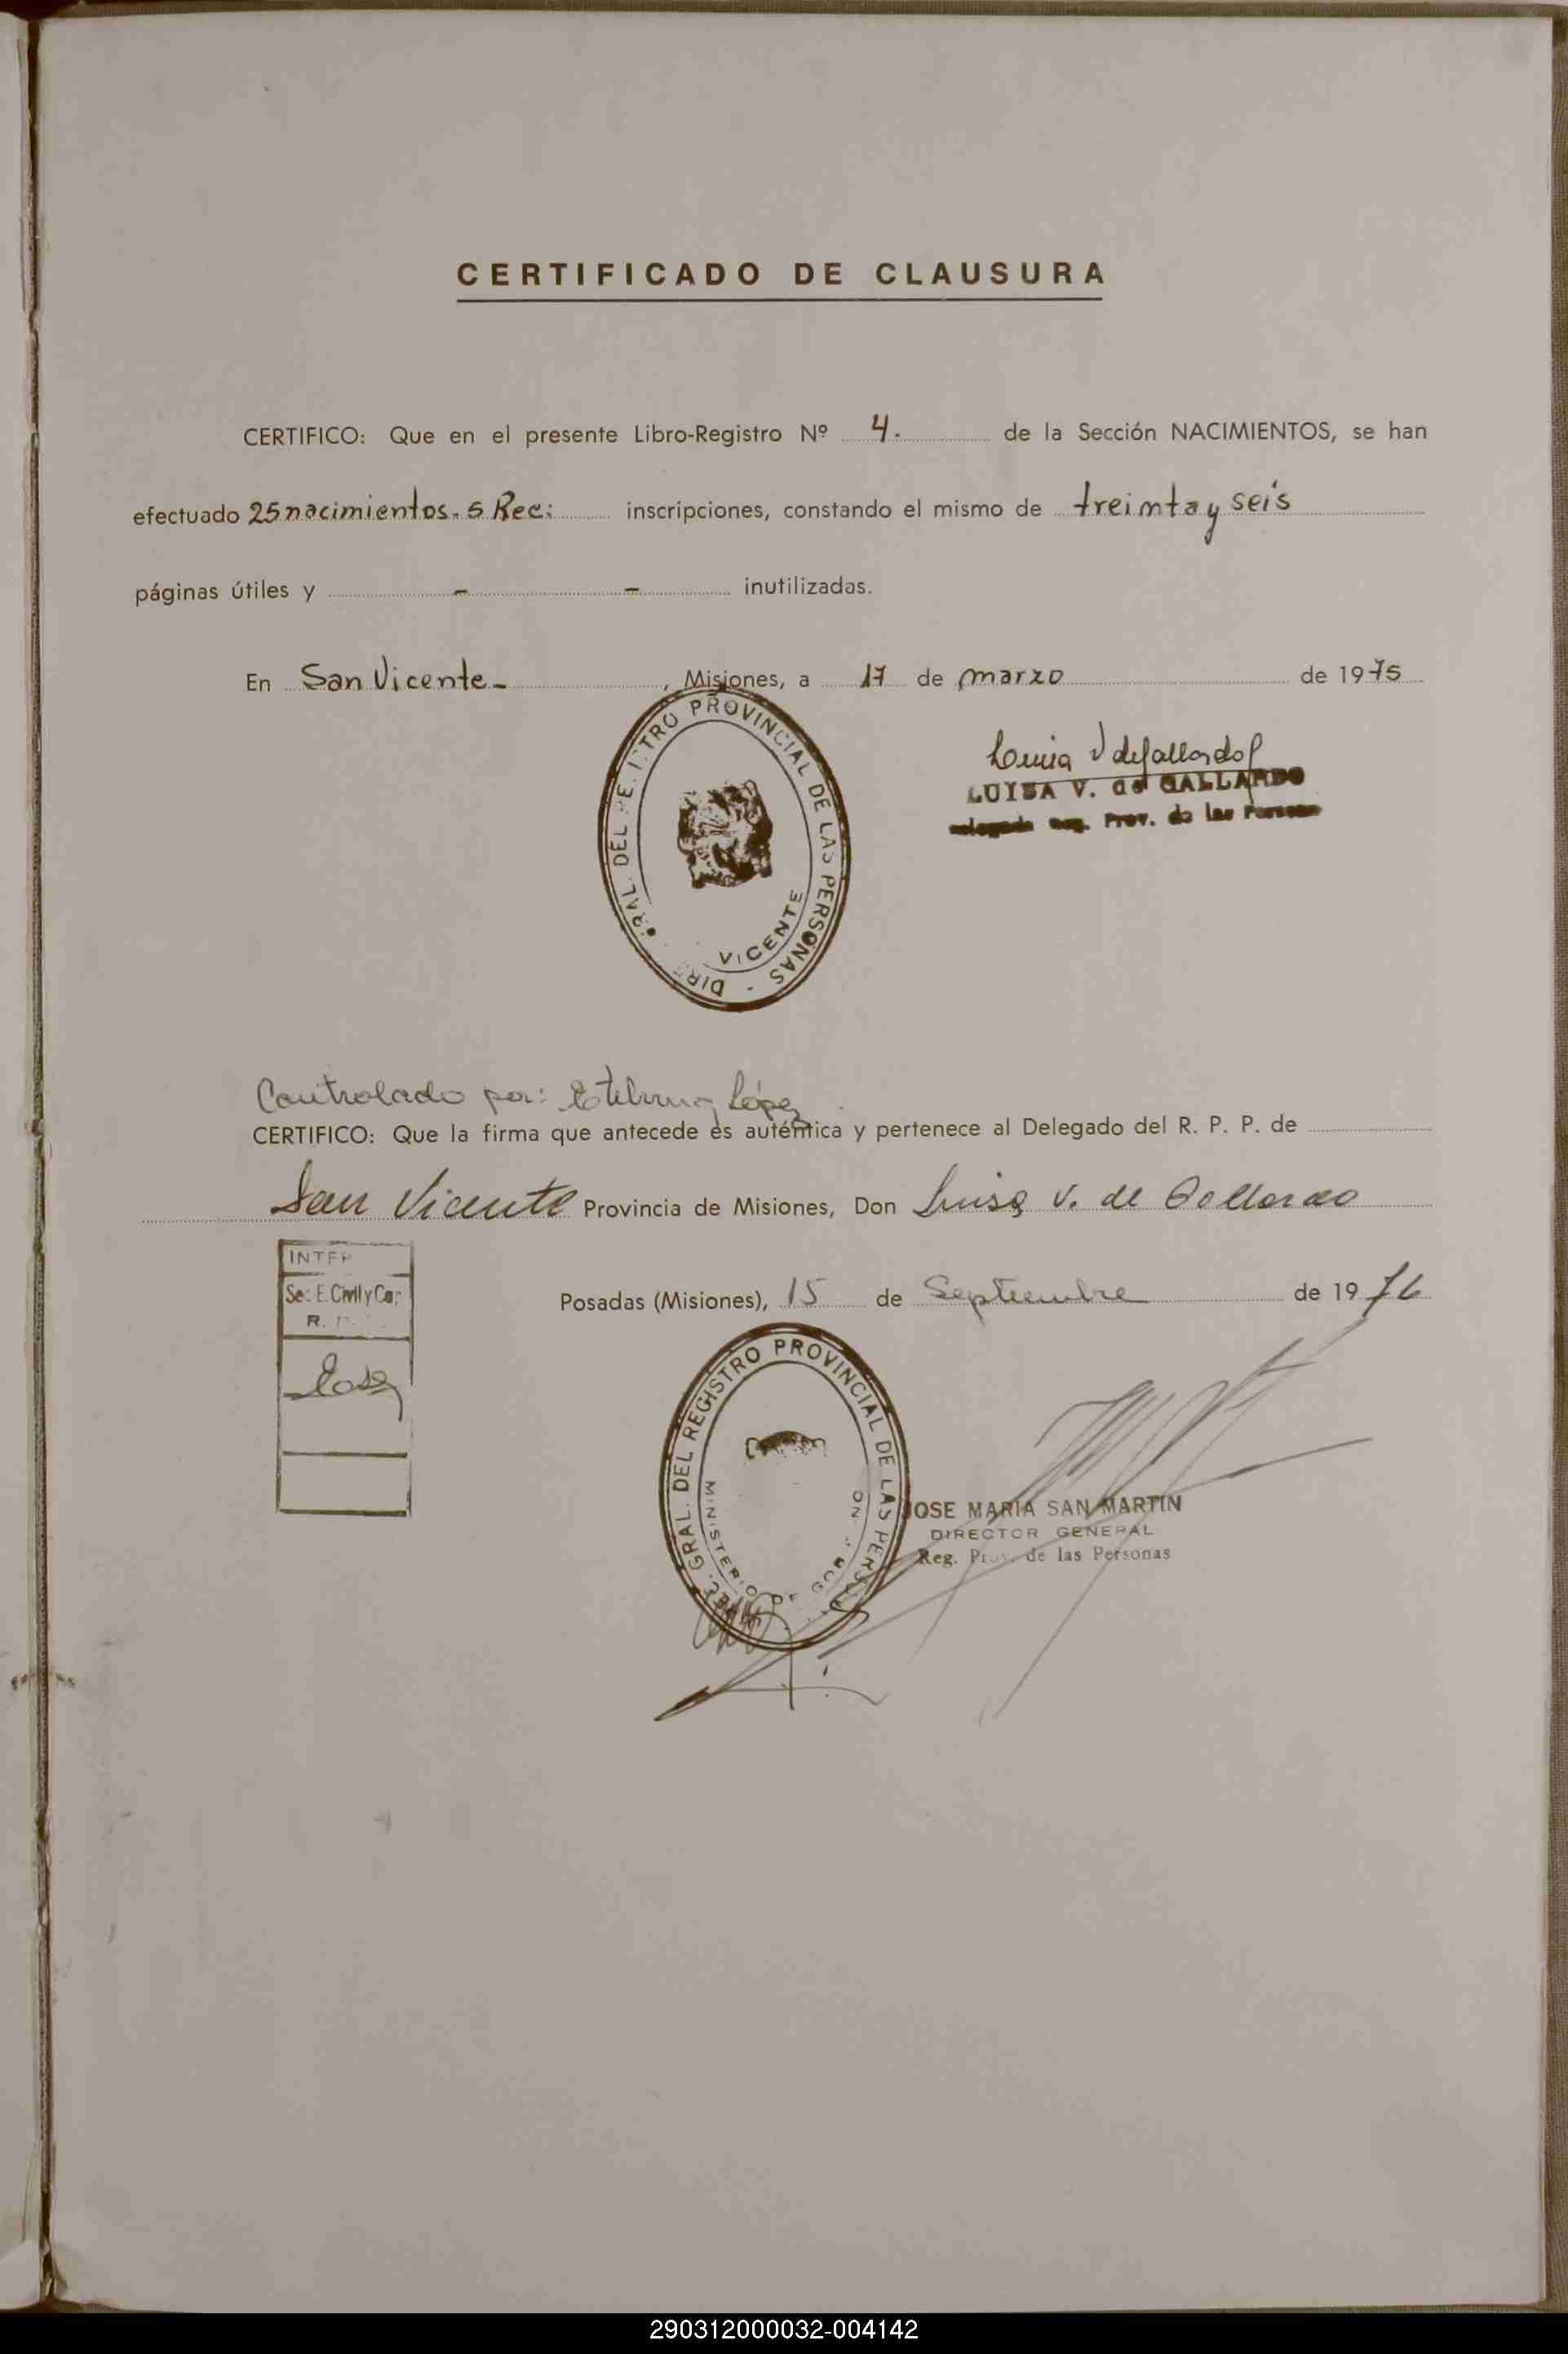 CERTIFICADO DE CLAUSURA
CERTIFICO: Que en el presente Libro-Registro Nº 4. de la Sección NACIMIENTOS, se han
efectuado 25 nacimientos. 5 Rec: inscripciones, constando el mismo de treinta y seis
páginas útiles y - - inutilizadas.
En San Vicente- , Misiones, a 17 de marzo de 1975
LUISA V. de GALLARDO
Prov. de las
DEL PROVINCIAL DE LAS PERSONAS
VICENTE
Controlado por: López
CERTIFICO: Que la firma que antecede es auténtica y pertenece al Delegado del R. P. P. de
San Vicente Provincia de Misiones, Don Luisa V. de Gallardo
Posadas (Misiones), 15 de Septiembre de 1976
Sec E. Civil y Cap
R.
GRAL. DEL REGISTRO PROVINCIAL DE LAS
MINISTERIO DE
JOSE MARIA SAN MARTIN
DIRECTOR GENERAL
Reg. Prov. de las Personas
290312000032-004142